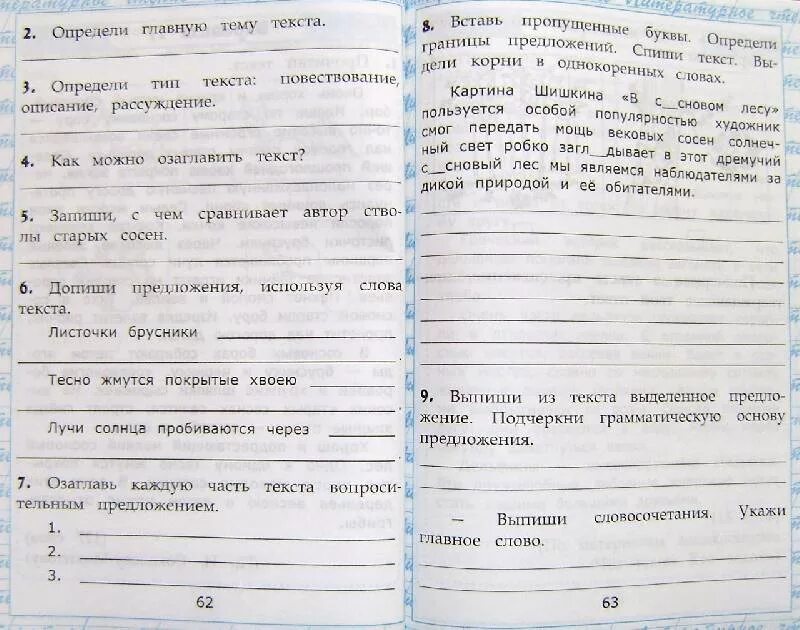 2. Определи главную тему текста.
3. Определи тип текста: повествование,
описание, рассуждение.
4. Как можно озаглавить текст?
5. Запиши, с чем сравнивает автор ство-
лы старых сосен.
6. Допиши предложения, используя слова
текста.
Листочки брусники
Тесно жмутся покрытые хвоею
Лучи солнца пробиваются через
7. Озаглавь каждую часть текста вопроси-
тельным предложением.
1.
2.
3.
62
8. Вставь пропущенные буквы. Определи
границы предложений. Спиши текст. Вы-
дели корни в однокоренных словах.
Картина Шишкина «В с__сновом лесу»
пользуется особой популярностью художник
смог передать мощь вековых сосен солнеч-
ный свет робко загл__дывает в этот дремучий
с__сновый лес мы являемся наблюдателями за
дикой природой и её обитателями.
9. Выпиши из текста выделенное предло-
жение. Подчеркни грамматическую основу
предложения.
— Выпиши словосочетания. Укажи
главное слово.
63